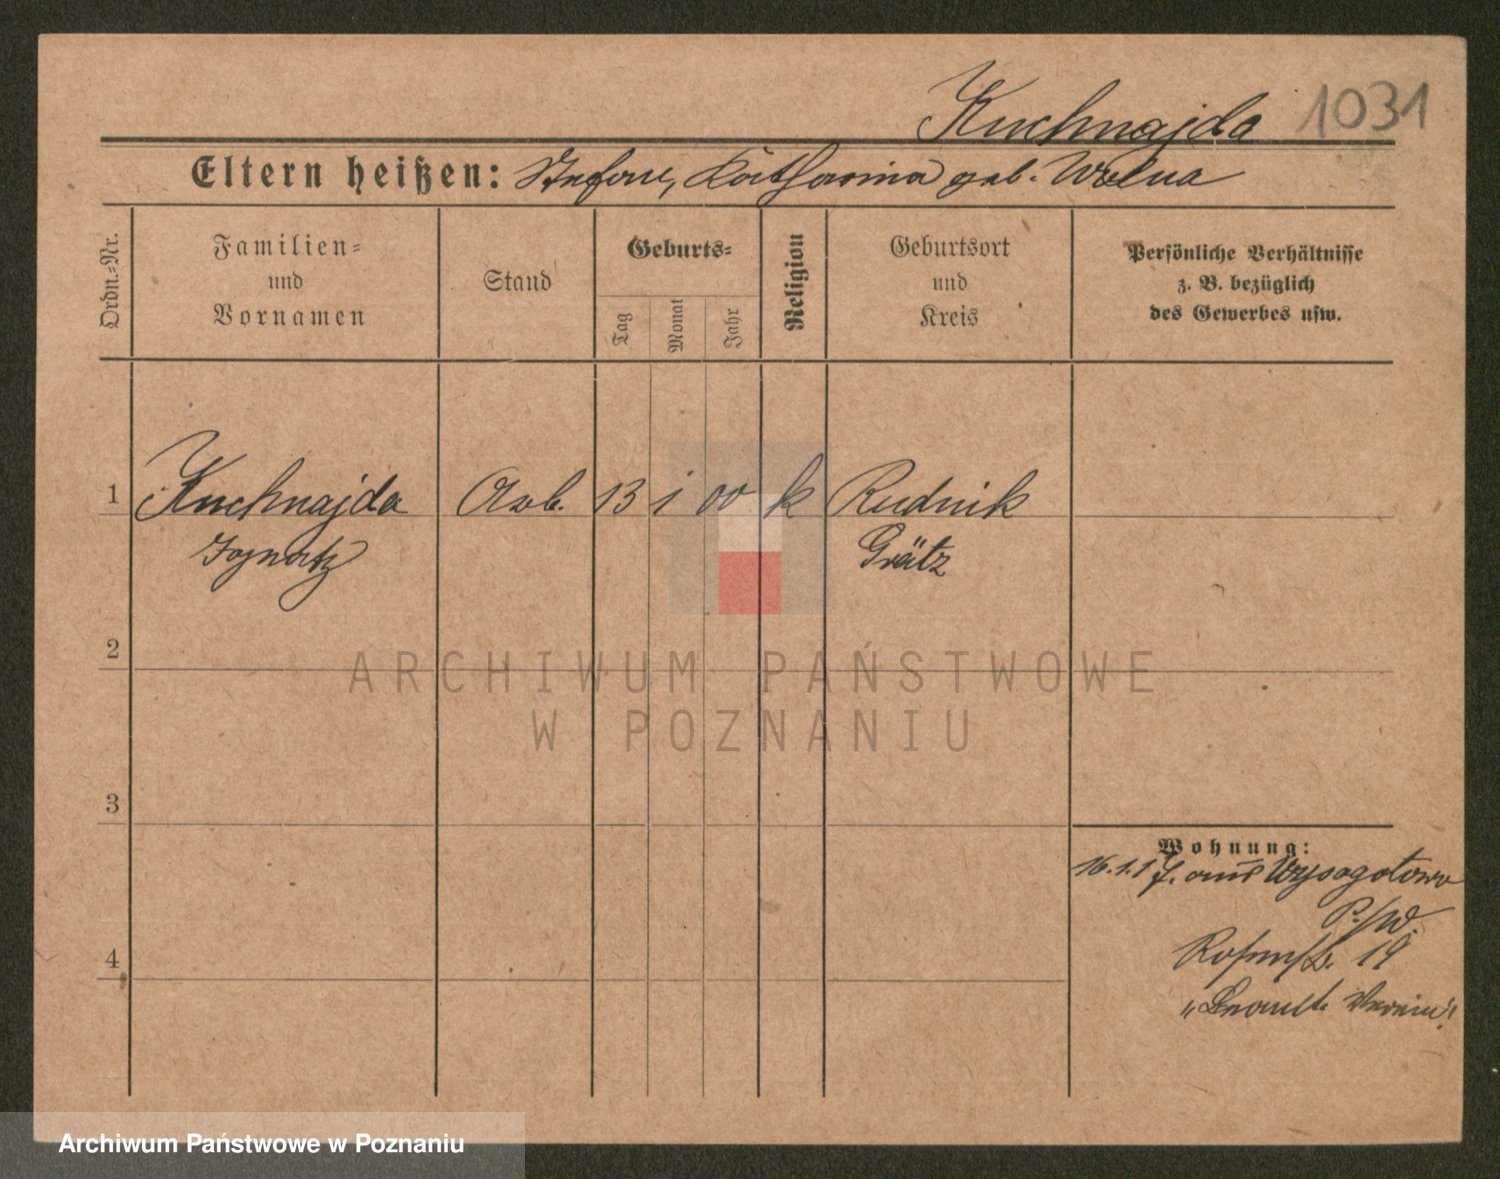 Kuchnajda 1031
Eltern heißen: Stefan, Katharina geb. Wolna
Ordn.=Nr.
Familien=
und
Vornamen
Stand
Geburts=
Tag
Monat
Jahr
Religion
Geburtsort
und
Kreis
Persönliche Verhältnisse
z. B. bezüglich
des Gewerbes usw.
1 Kuchnajda Arb. 13 1 00 k Rudnik
Ignatz Grätz
2
ARCHIWUM PAŃSTWOWE
W POZNANIU
3
Wohnung:
16.1.17. aus Wysogotowo
P./W.
19
Verein"
4
Archiwum Państwowe w Poznaniu